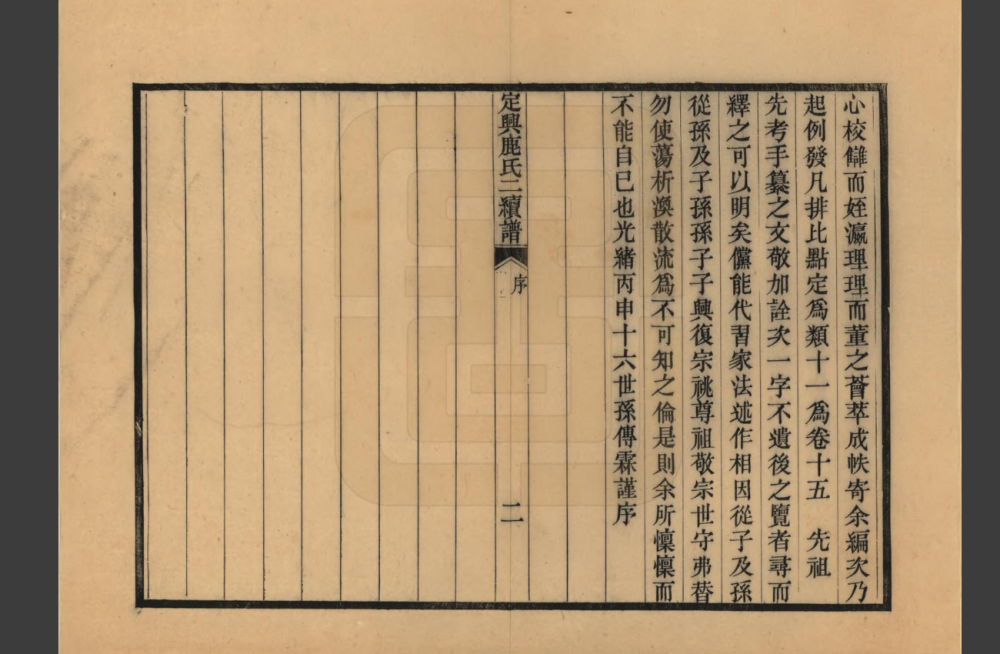 心校讎而姪瀛理理而董之薈萃成帙寄余編次乃
起例發凡排比點定爲類十一爲卷十五　先祖
先考手纂之文敬加詮次一字不遺後之覽者尋而
繹之可以明矣儻能代習家法述作相因從子及孫
從孫及子孫孫子子興復宗祧尊祖敬宗世守弗替
勿使蕩析渙散流爲不可知之倫是則余所懍懍而
不能自已也光緒丙申十六世孫傳霖謹序
定興鹿氏二續譜　序　二